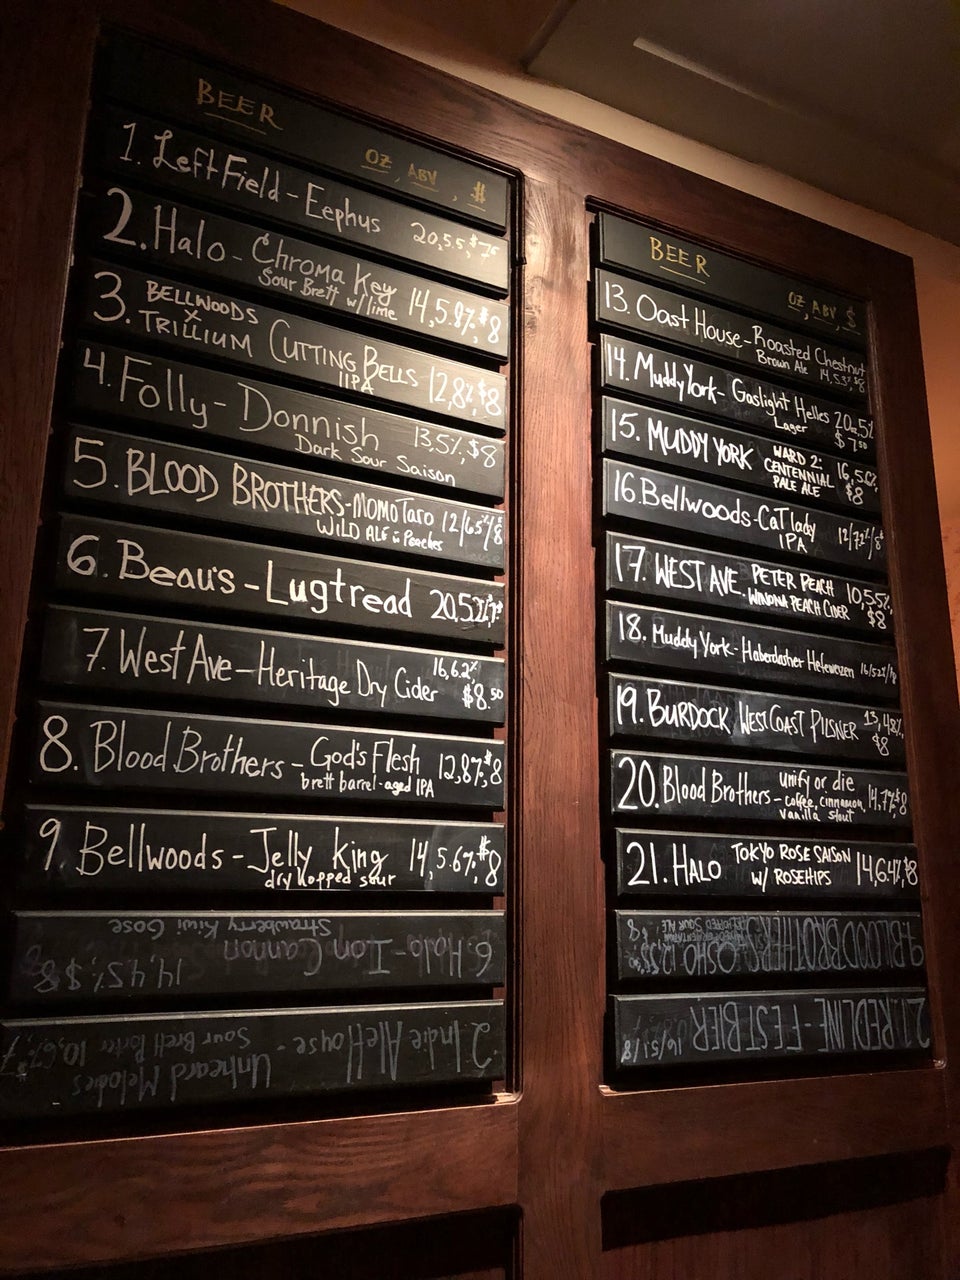 BEER
OZ, ABV, $
1. Left Field - Eephus 20, 5.5, $7
2. Halo - Chroma Key 14, 5.8%, $8
Sour Brett w/lime
3. BELLWOODS X TRILLIUM CUTTING BELLS 12, 8%, $8
IIPA
4. Folly - Donnish 13, 5%, $8
Dark Sour Saison
5. BLOOD BROTHERS - MOMOTARO 12/6.5%/8
WILD ALE Peaches
6. Beau's - Lugtread
7. West Ave - Heritage Dry Cider 16, 6.2% $8.50
8. Blood Brothers - God's Flesh 12, 8%, $8
brett barrel-aged IPA
9. Bellwoods - Jelly King 14, 5.6%, $8
dry hopped sour
6. Halo - Ion Cannon 14, 4.5%, $8
Strawberry Kiwi Gose
2. Indie AleHouse - Unheard Melodies
Sour Brett Porter 10, 6.7%
BEER
OZ, ABV, $
13. Oast House - Roasted Chestnut
Brown Ale 14, 5.3%, $8
14. Muddy York - Gaslight Helles 20oz, 5%
Lager $7.50
15. MUDDY YORK WARD 2: CENTENNIAL PALE ALE 16, 5.6%, $8
16. Bellwoods - Cat lady 12/7.2%/8
IPA
17. WEST AVE. PETER PEACH 10, 5.5%, $8
WINONA PEACH CIDER
18. Muddy York - Haberdasher Hefeweizen 16/5.2%
19. BURDOCK WEST COAST PILSNER 13, 4.8%, $8
20. Blood Brothers - unify or die 14, 7%, $8
coffee, cinnamon, vanilla stout
21. HALO TOKYO ROSE SAISON 14, 6.4%, $8
W/ ROSEHIPS
9. BLOOD BROTHERS - OSHO
SOUR ALE
21. REDLINE - FEST BIER 16/5.1/8